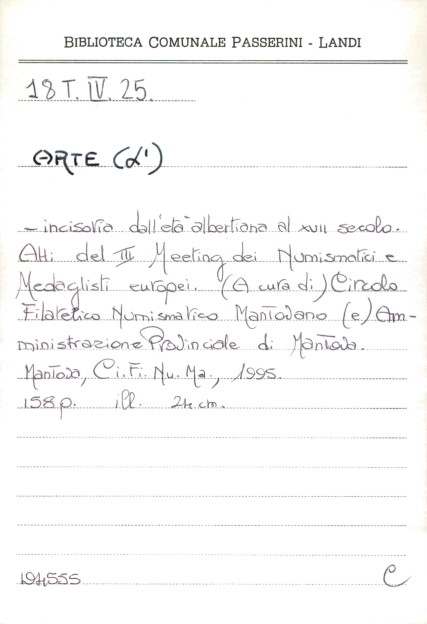 BIBLIOTECA COMUNALE PASSERINI - LANDI
18 T. IV. 25.
ARTE (L')
- incisoria dall'età albertiana al XVII secolo.
Atti del III Meeting dei Numismatici e
Medaglisti europei. (A cura di) Circolo
Filatelico Numismatico Mantovano (e) Am-
ministrazione Provinciale di Mantova.
Mantova, Ci.Fi.Nu.Ma., 1995.
158 p. ill. 24 cm.
194555 C